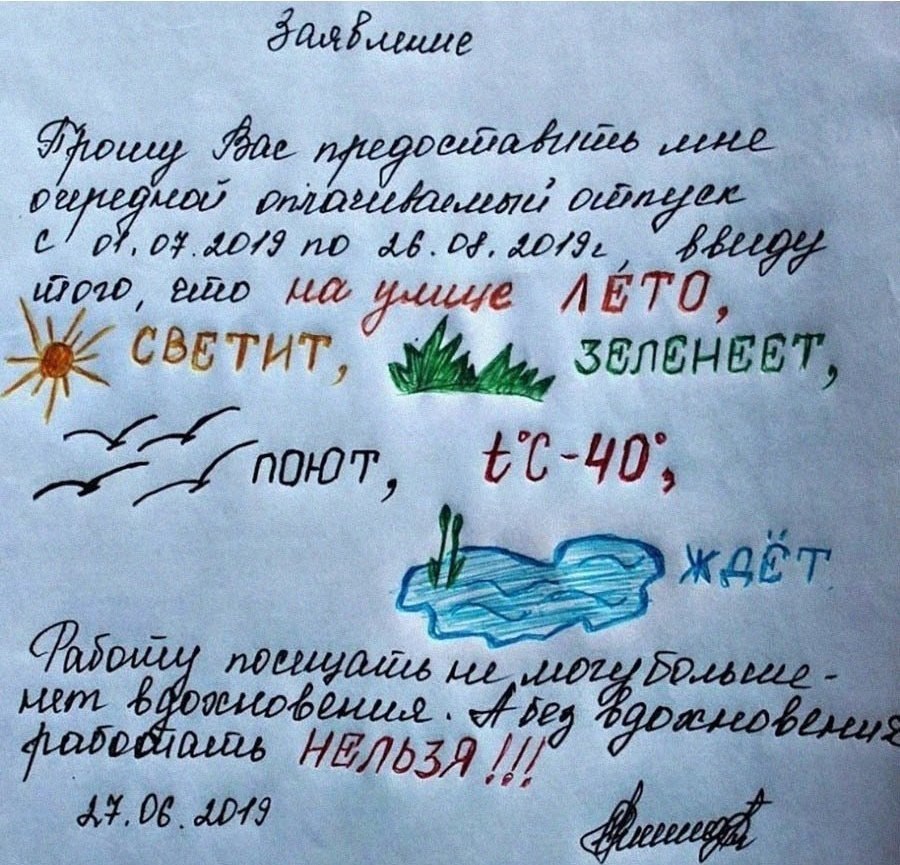 Заявление
Прошу Вас предоставить мне
очередной оплачиваемый отпуск
с 01.07.2019 по 26.08.2019г, ввиду
того, что на улице ЛЕТО,
СВЕТИТ, ЗЕЛЕНЕЕТ,
ПОЮТ, t°C-40°,
ЖДЁТ
Работу посещать не могу больше-
нет вдохновения. А без вдохновения
работать НЕЛЬЗЯ!!!
27.06.2019